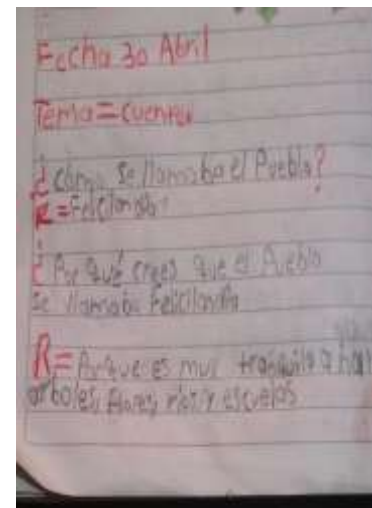 Fecha 30 Abril
Tema = cuento
¿cómo se llamaba el Pueblo?
R = Felicilandia
¿Por qué crees que el Pueblo
se llamaba Felicilandia
R = Porque es muy tranquilo hay
arboles, flores, rios y escuelas